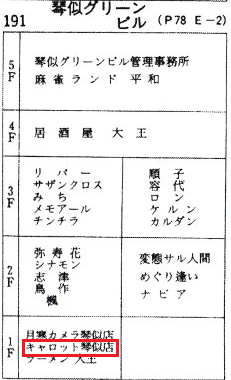 琴似グリーン
191 ビル (P78 E-2)
5F
琴似グリーンビル管理事務所
麻雀ランド 平和
4F
居酒屋 大王
3F
リバー
サザンクロス
みち
メモアール
チンチラ
順子
容代
ロン
ケルン
カルダン
2F
弥寿花
シナモン
志津
鳥作
楓
変態サル人間
めぐり逢い
ナピア
1F
月寒カメラ琴似店
キャロット琴似店
ラーメン大王